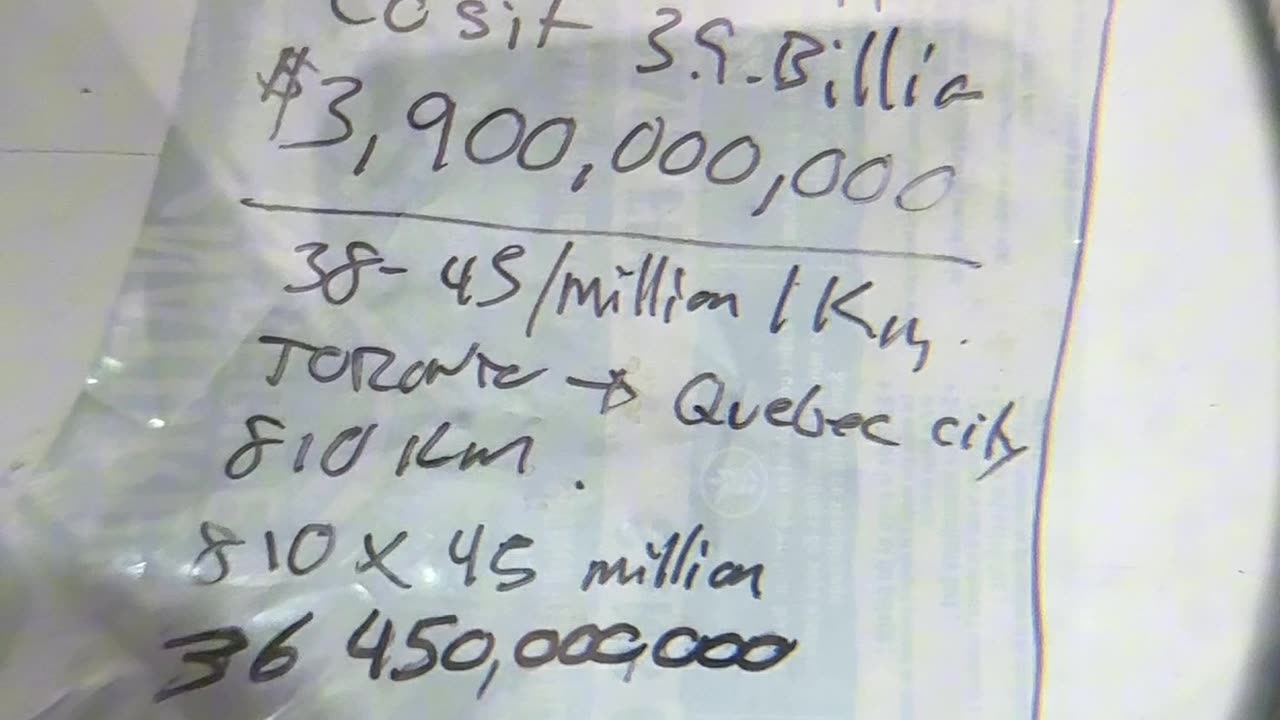 Cosit 3.9.Billio
$3,900,000,000
38-45/million / Km.
TORONTO → Quebec city
810 Km.
810 x 45 million
36 450,000,000